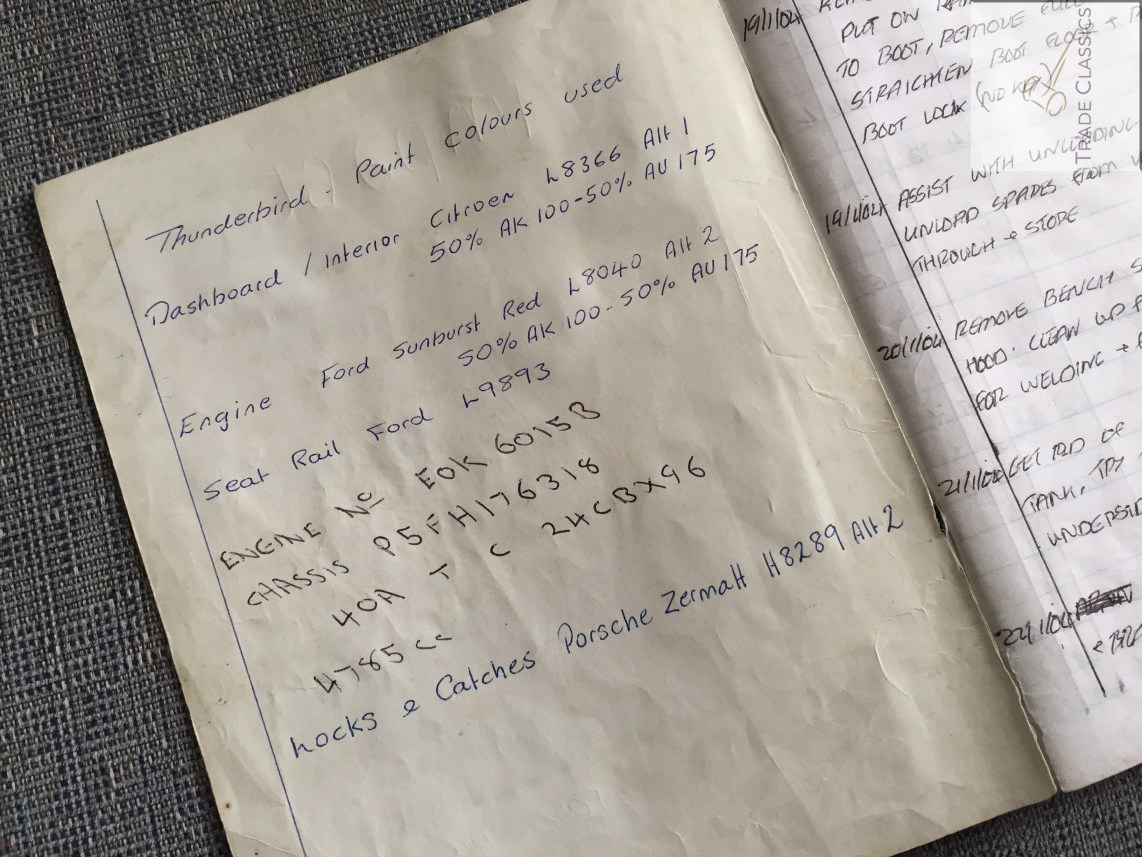 Thunderbird. Paint colours used
Dashboard / Interior Citroen L8366 Alt 1
50% AK 100-50% AU 175
Engine Ford Sunburst Red L8040 Alt 2
50% AK 100-50% AU 175
Seat Rail Ford L9893
ENGINE Nº EOK 6015B
CHASSIS P5FH176318
40A T C 24CBX96
4785cc
Locks & Catches Porsche Zermatt H8289 Alt 2
19/1/04
PUT ON
TO BOOT, REMOVE
STRAIGHTEN BOOT FLOOR +
BOOT LOCK (NO KEY
19/1/04 ASSIST WITH UNLOADING
UNLOAD SPARES FROM
THROUGH & STORE
20/1/04 REMOVE BENCH
HOOD. CLEAN UP
FOR WELDING +
21/1/04 GET RID OF
TANK, TRY
UNDERSID
22/1/04
TRADE CLASSICS